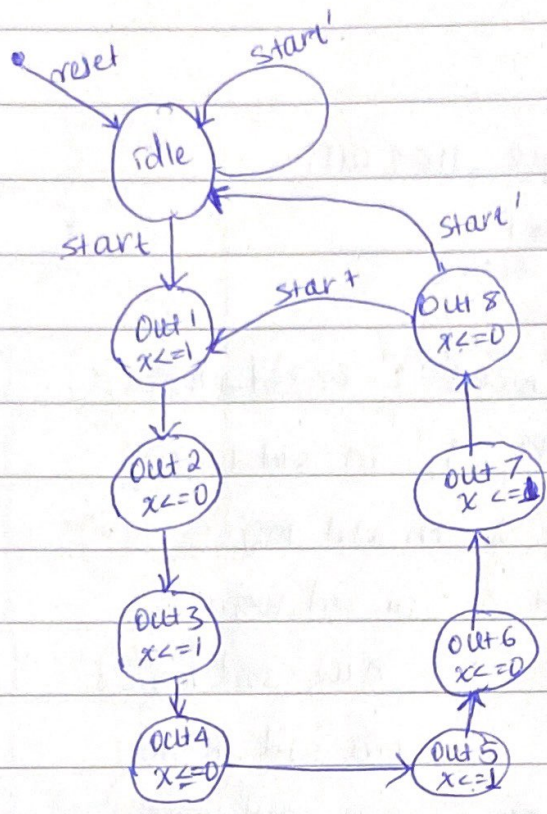 start'
reset
idle
start'
start
start
out 1
x<=1
out 8
x<=0
out 2
x<=0
out 7
x<=1
out3
x<=1
out 6
x<=0
out4
x<=0
out 5
x<=1